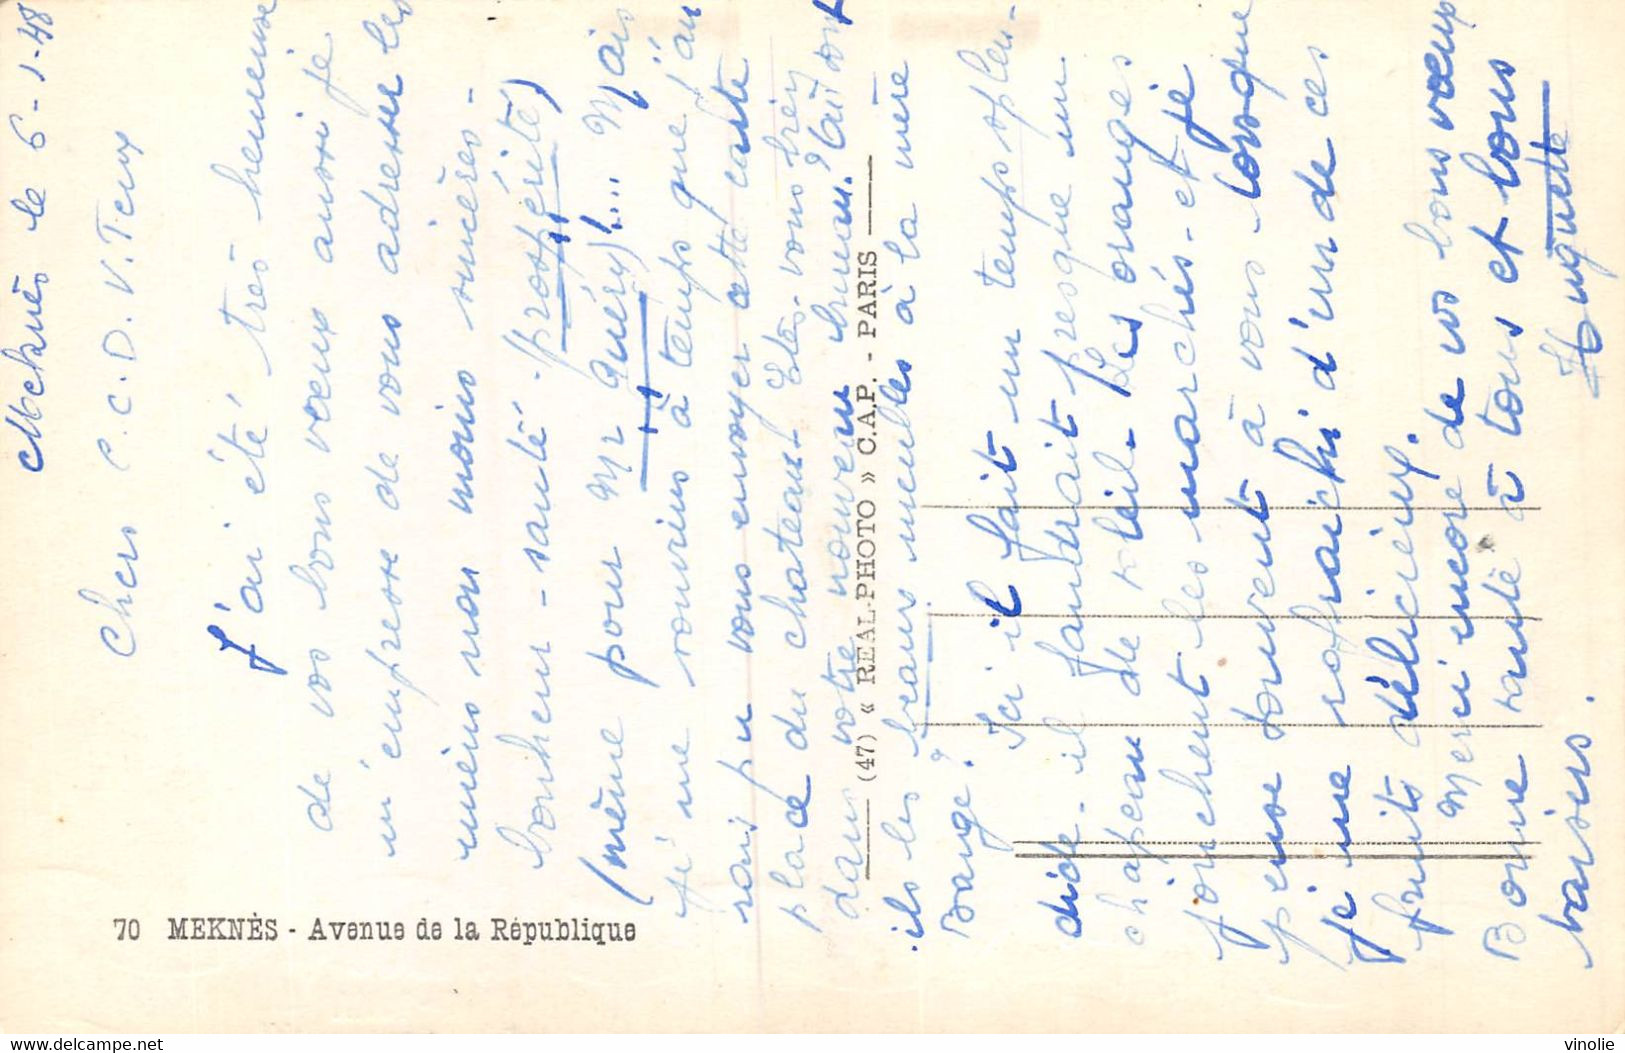 Meknès le 6-1-48
Chers C.C.D.V. Teux
J'ai été très heureuse
de vos bons vœux aussi je
m'empresse de vous adresser les
miens non moins sincères -
bonheur - santé - prospérité)
(même pour Mr Guéry)!... Mais
je me souviens à temps que j'au
rais pu vous envoyer cette carte
place du chateau - Etes-vous bien
dans votre nouveau bureau? Où sont
ils les beaux meubles à la mère
Barge? Ici il fait un temps splen-
dide - il faudrait presque un
chapeau de soleil - les oranges
jonchent les marchés - et je
pense souvent à vous lorsque
je me rafraichi d'un de ces
fruits délicieux.
Merci encore de vos bons vœux
Bonne santé à tous et bons
baisers.
Huguette
70 MEKNÈS - Avenue de la République
(47) « REAL-PHOTO » C.A.P. - PARIS
delcampe.net
vinolie